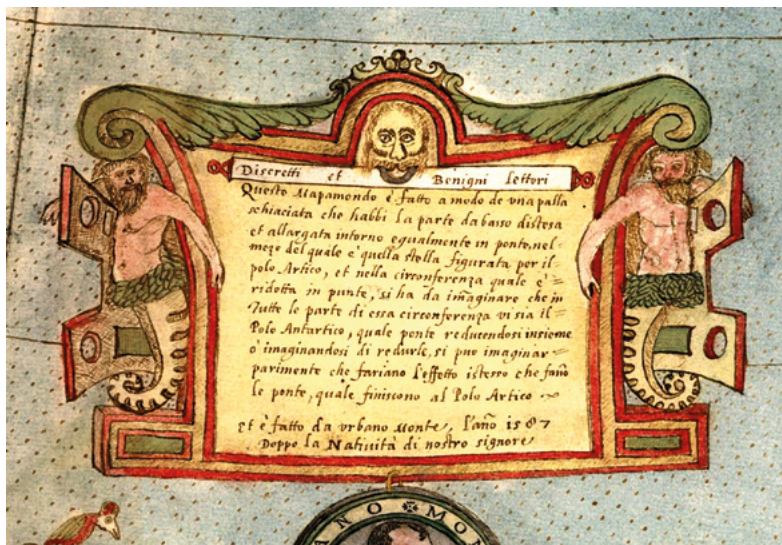 Discretti et Benigni lettori
Questo Mapamondo è fatto a modo de una palla
schiaciata che habbi la parte da basso distesa
et allargata intorno egualmente in ponte, nel=
mezo del quale e quella stella figurata per il
polo Artico, et nella circonferenza quale e'
ridotta in punte, si ha da imaginare che in
Tutte le parte di essa circonferenza vi sia il=
Polo Antartico, quale ponte reducendosi insieme
o' imaginandosi di redurle, si puo imaginar=
parimente che fariano l'effetto istesso che fano
le ponte, quale finiscono al Polo Artico
et è fatto da vrbano Monte, l'año 1587
Doppo la Natività di nostro signore
ANO MON